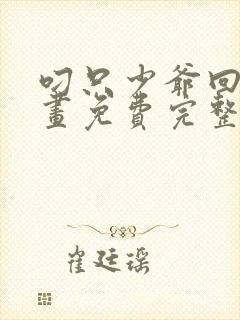 叼只少爷回
畫免费完整
崔廷瑶